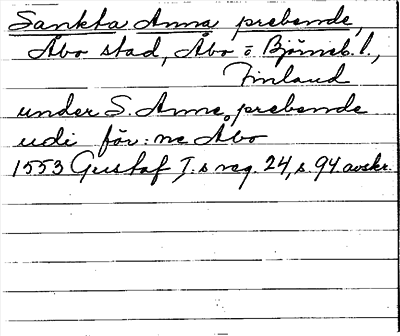 Sankta Anna prebende,
Åbo stad, Åbo o Björneb. l.,
Finland
under S. Anne prebende
udi för:ne Åbo
1553 Gustaf I.s reg. 24, s. 94 avskr.